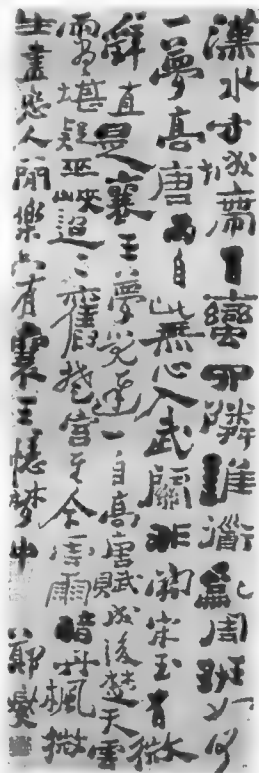 漢水方城帶百蠻四隣誰道亂周班如何
一夢高唐雨自此無心入武關非關宋玉有微
辭直是襄王夢覺遲一自高唐賦成後楚天雲
雨盡堪疑巫峽迢々舊楚宮至今雲雨暗丹楓微
生盡戀人間樂只有襄王憶夢中 鄭燮